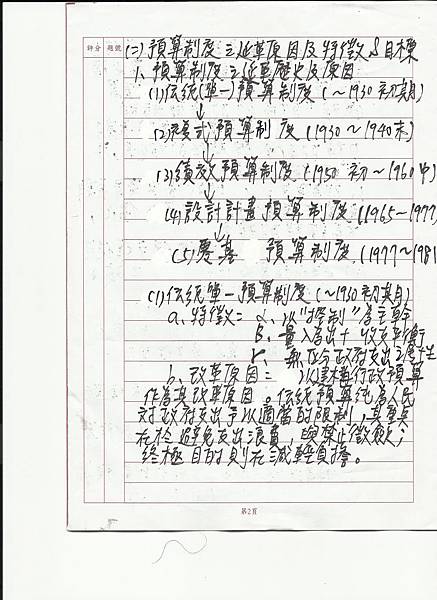 評分 題號
(二)預算制度之延革原因及特徵&目標
1、預算制度之延革歷史及原因
(1)傳統(單一)預算制度(~1930初期)
(2)複式預算制度(1930~1940末)
(3)績效預算制度(1950初~1960中)
(4)設計計畫預算制度(1965~1977)
(5)零基 預算制度(1977~1981
(1)傳統單一預算制度(~1930初期)
a、特徵: α、以"控制"為主幹
β、量入為出+收支平衡
γ
b、改革原因: 以建構行政預算
作為其改革原因。傳統預算純為人民
對政府支出予以適當的限制,其重點
在於避免支出浪費,與禁止徵歛;
終極目的則在減輕負擔。
第2頁